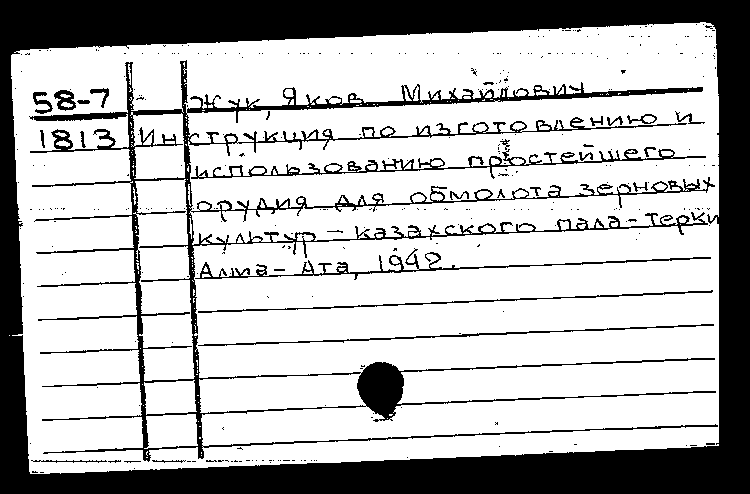 58-7 Жук, Яков Михайлович
1813 Инструкция по изготовлению и
использованию простейшего
орудия для обмолота зерновых
культур – казахского пала-терки
Алма-Ата, 1942.